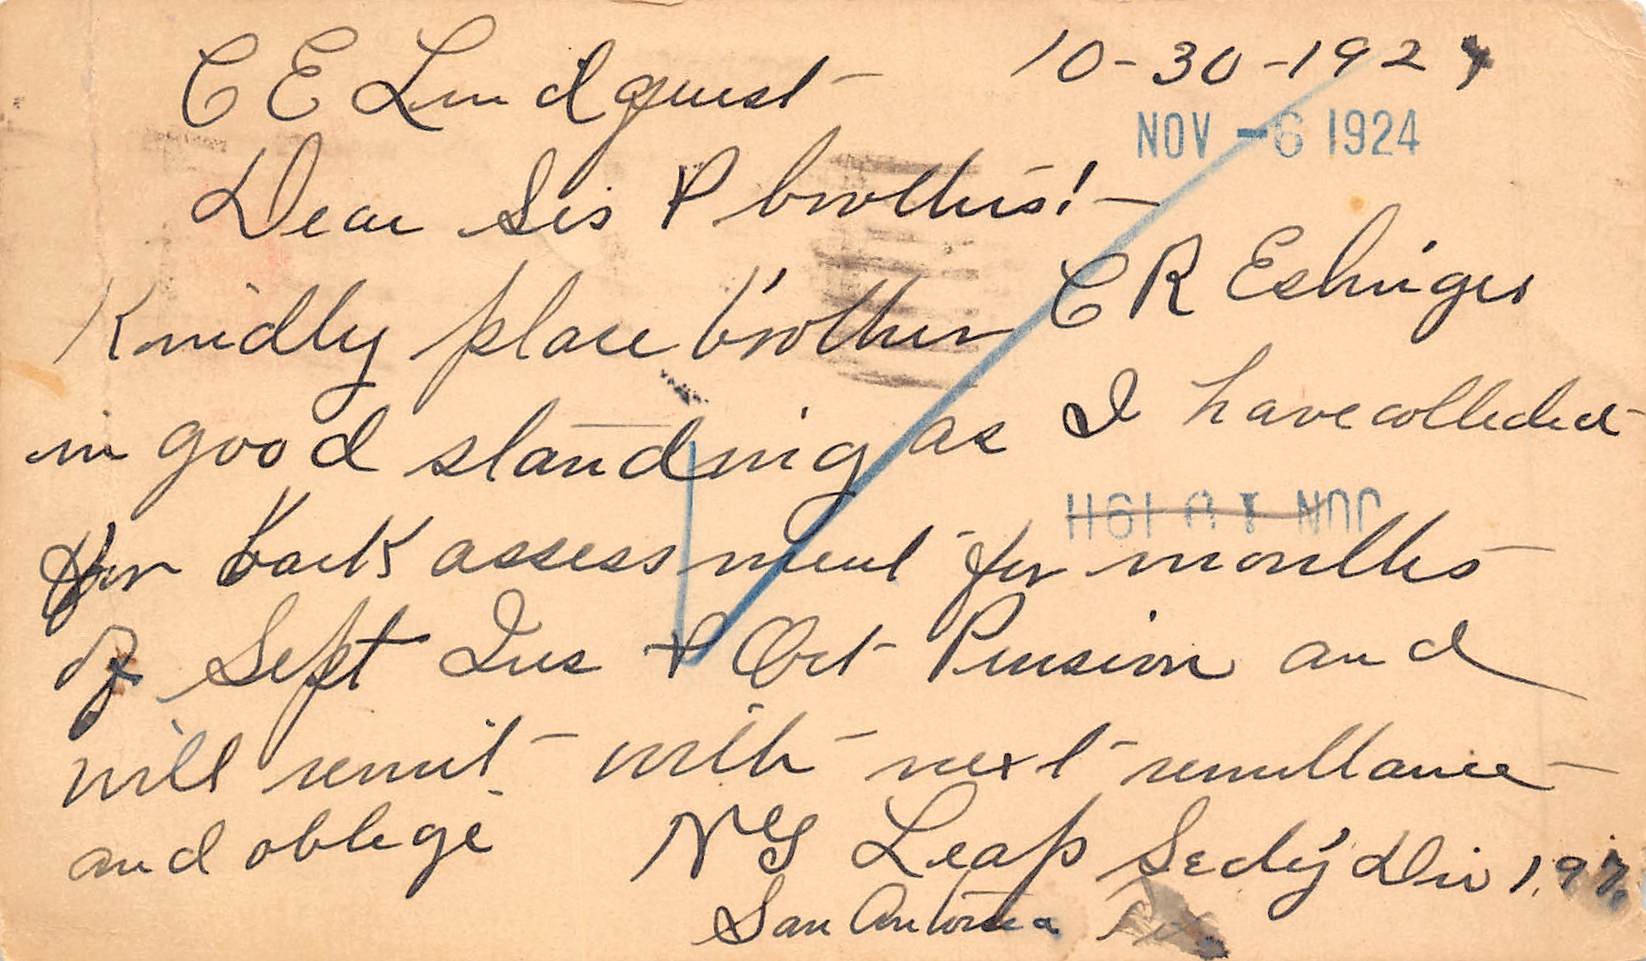 C E Lindquist 10-30-1924
NOV -6 1924
Dear Sis & brothers!-
Kindly place brother C R Eshinger
in good standing as I have collected
JUN 1911
for back assessment for months
of Sept Ins & Oct Pension and
will remit with next remittance
and oblige N G Leaf Secty Div 197.
San Antonio